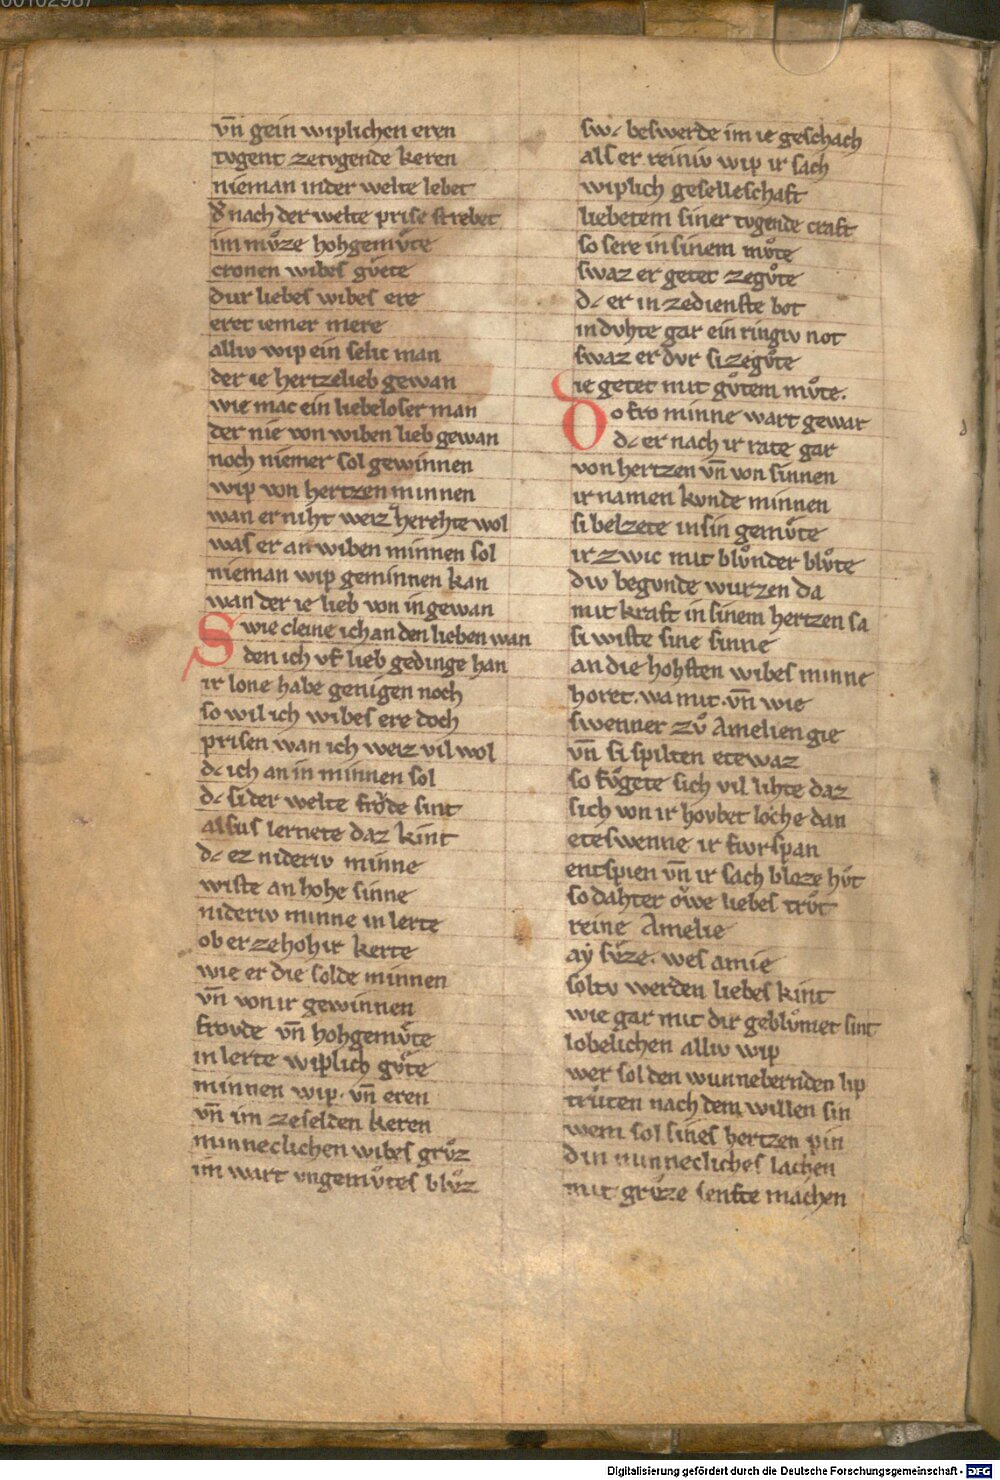 00102987
vn̄ gein wiplichen eren
tvgent zetvgende keren
nieman inder welte lebet
d' nach der welte prise strebet
im mvͦze hohgemvͤte
cronen wibes gvͤete
dur liebes wibes ere
eret iemer mere
alliv wip ein selic man
der ie hertzelieb gewan
wie mac ein liebeloser man
der nie von wiben lieb gewan
noch niemer sol gewinnen
wip von hertzen minnen
wan er niht weiz herehte wol
was er an wiben minnen sol
nieman wip geminnen kan
wan der ie lieb von in gewan
Swie cleine ich an den lieben wan
den ich vf lieb gedinge han
ir lone habe genigen noch
so wil ich wibes ere doch
prisen wan ich weiz vil wol
dc ich an in minnen sol
dc si der welte froͤde sint
alsus lernete daz kint
dc ez nideriv minne
wiste an hohe sinne
nideriv minne in lerte
ob er ze hoh ir kerte
wie er die solde minnen
vn̄ von ir gewinnen
frovde vn̄ hohgemvͤte
in lerte wiplich gvͤte
minnen wip · vn̄ eren
vn̄ im ze selden keren
minneclichen wibes grvͦz
im wart vngemvͦtes bvͦz
swc beswerde im ie geschach
als er reiniv wip ir sach
wiplich geselleschaft
liebetem siner tvgende craft
so sere in sinem mvͦte
swaz er getet zegvͦte
dc er in zedienste bot
in dvhte gar ein ringiv not
swaz er dvr si zegvͦte
ie getet mit gvͦtem mvͦte.
Do fro minne wart gewar
dc er nach ir rate gar
von hertzen vn̄ von sinnen
ir namen kvnde minnen
si belzete in sin gemvͤte
ir zwic mit blvͦnder blvͤte
div begvnde wurzen da
mit kraft in sinem hertzen sa
si wiste sine sinne
an die hohsten wibes minne
horet · wa mit · vn̄ wie
swenner zvͦ Amelien gie
vn̄ si spilten etewaz
so fvͦgete sich vil lihte daz
sich von ir hovbet loche dan
eteswenne ir fvrspan
entspien vn̄ ir sach bloze hvͦt
so dahter oͮwe liebes trvͦt
reine Amelie
ay svͤze · wes amie
soltv werden liebes kint
wie gar mit dir geblvͦmet sint
lobelichen alliv wip
wer sol den wunnebernden lip
trûten nach dem willen sin
wem sol sines hertzen pin
din minnecliches lachen
mit grvͦze senfte machen
Digitalisierung gefördert durch die Deutsche Forschungsgemeinschaft - DFG